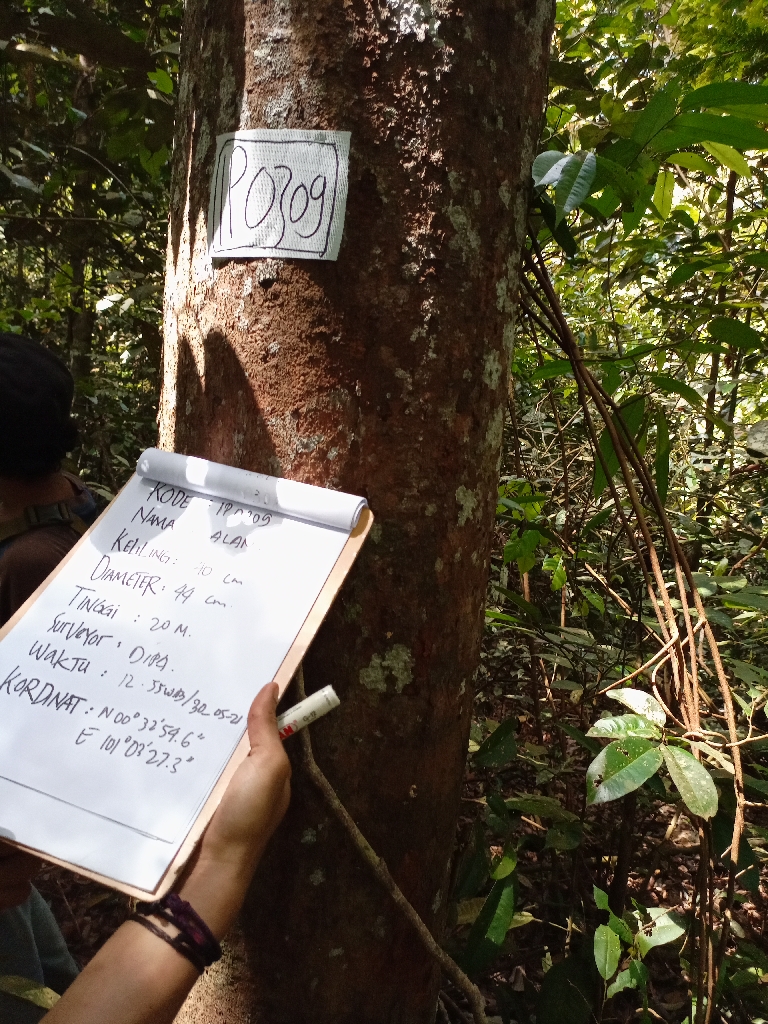 IP0309
KODE : IP0309
NAMA : ALAN
KELILING : cm
DIAMETER : 44 cm.
TINGGI : 20 M.
SURVEYOR : DIPA.
WAKTU : 12.55 WIB/
KORDNAT : N 00° 32' 59.6"
E 101° 03' 27.3"